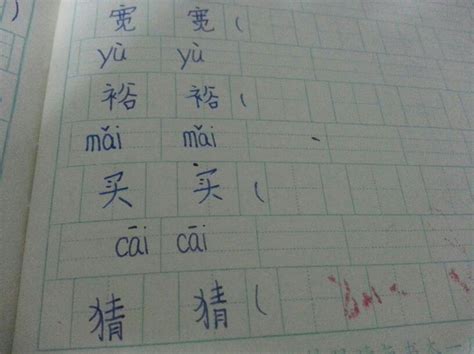 )
宽 宽 (
yù yù
裕 裕 (
mǎi mǎi
买 买 (
cāi cāi
猜 猜 (